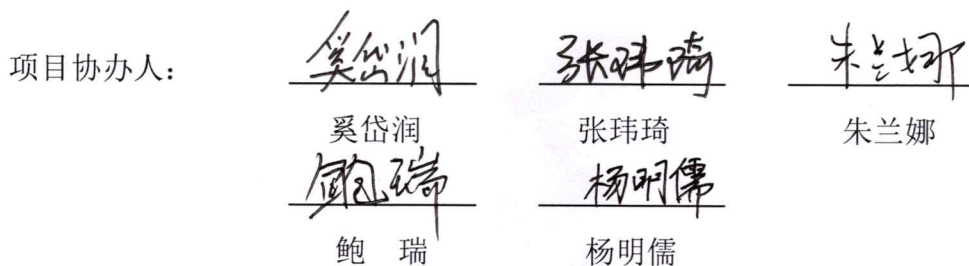 项目协办人： 奚岱润 张玮琦 朱兰娜
奚岱润 张玮琦 朱兰娜
鲍瑞 杨明儒
鲍 瑞 杨明儒